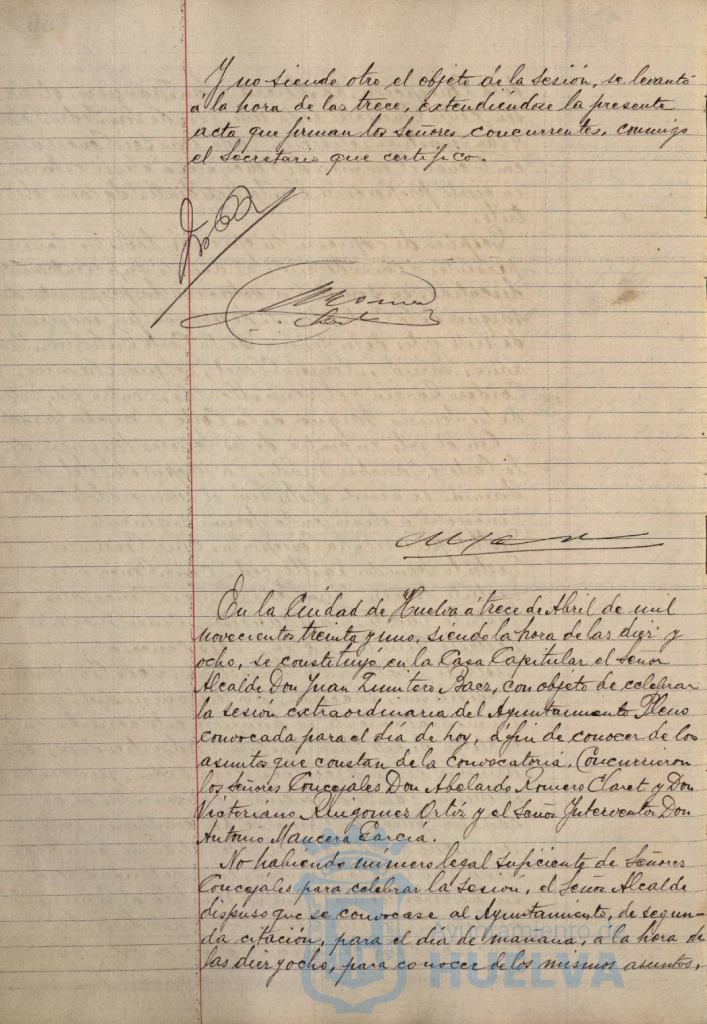 Y no siendo otro el objeto de la sesión, se levantó
á la hora de las trece, extendiéndose la presente
acta que firman los Señores concurrentes, conmigo
el Secretario que certifico.
En la Ciudad de Huelva á trece de Abril de mil
novecientos treinta y uno, siendo la hora de las diez y
ocho, se constituyó en la Casa Capitular el Señor
Alcalde Don Juan Quintero Baez, con objeto de celebrar
la sesión extraordinaria del Ayuntamiento Pleno
convocada para el día de hoy, á fin de conocer de los
asuntos que constan de la convocatoria. Concurrieron
los Señores Concejales Don Abelardo Romero Claret y Don
Victoriano Ruigomez Ortíz y el Señor Interventor Don
Antonio Mancera García.
No habiendo número legal suficiente de Señores
Concejales para celebrar la sesión, el Señor Alcalde
dispuso que se convocase al Ayuntamiento, de segun-
da citación, para el día de mañana, a la hora de
las diez y ocho, para conocer de los mismos asuntos,
Ayuntamiento de
HUELVA